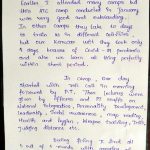 Earlier I attended many camps but
this RDC camp conducted in January
was very good and outstanding.
In other camps they take 10 days
to train us in different activities
but our Kamaan until they took only
4 days because of Covid-19 pandemic
and also we learn all things perfectly
within short period.
In camp, Our day
started with roll call in morning
followed by P.T. Then lectures were
given by officers and PI staffs on
National Integration, Personality Development,
Leadership, Social awareness, map reading,
Health and hygiene, Weapon training, Drill,
judging distance etc.
During firing, I fired all
5 out of 5 rounds with